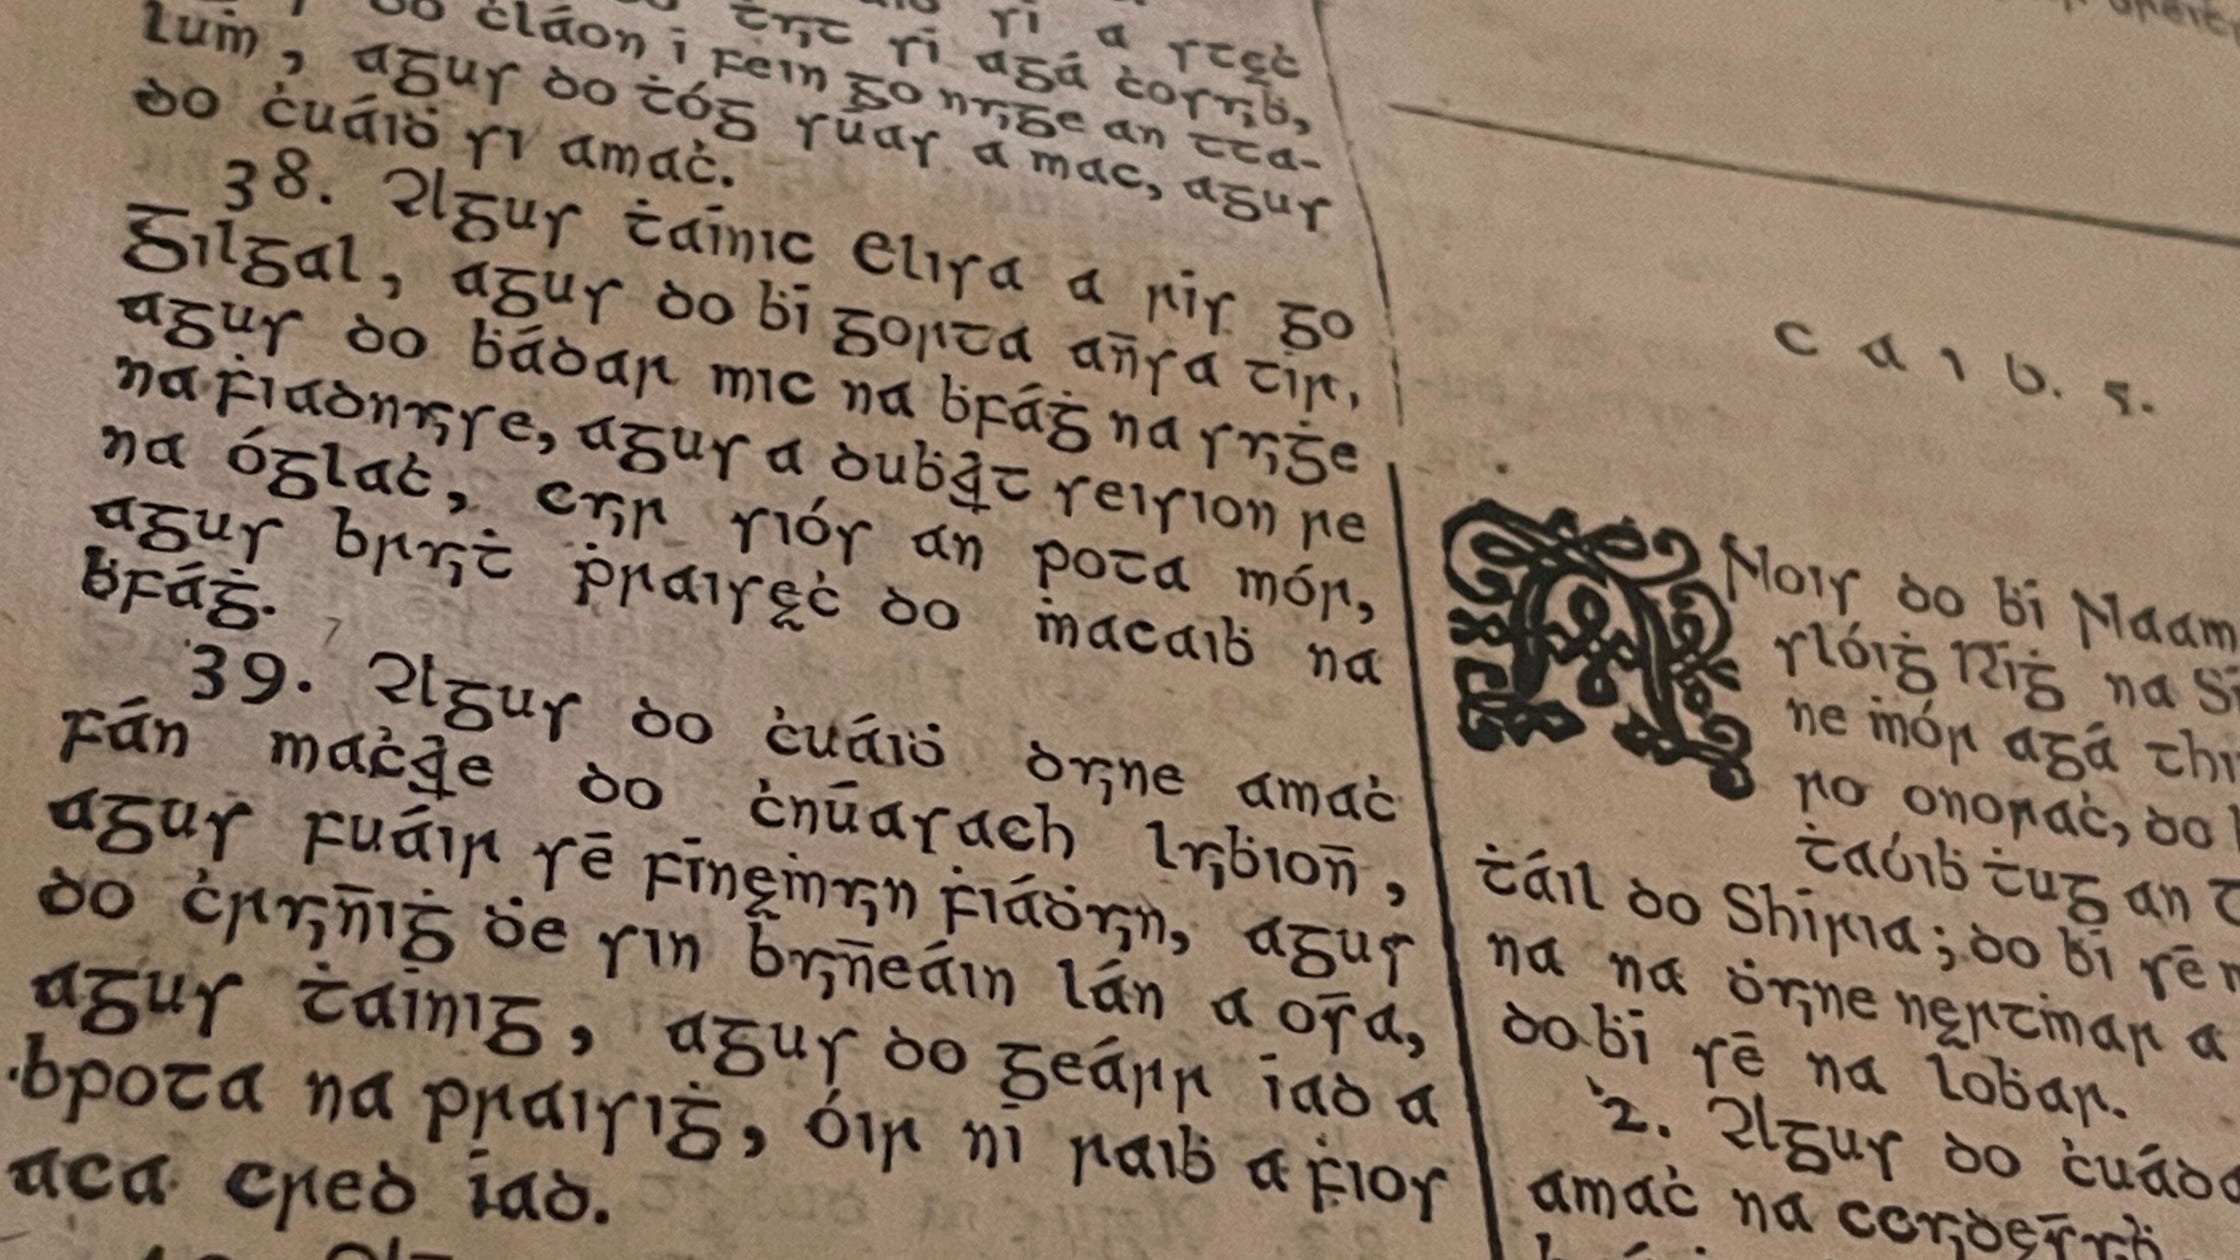 si a stęċ
tuit si agá ċosuiḃ,
do ċláon í fein go nuige an tta-
luṁ, agus do ṫóg súas a mac, agus
do ċuáiḋ si amaċ.
38. Agus ṫáinic Elisa a rís go
Gilgal, agus do ḃí gorta an̄sa tír,
agus do ḃádar mic na ḃfáġ na suiġe
na ḟiadnuise, agus a duḃairt seision re
na óglaċ, cuir siós an pota mór,
agus bruiṫ ṗraisęċ do ṁacaiḃ na
ḃfáġ.
39. Agus do ċuáiḋ duine amaċ
fán maċaire do ċnúasach luiḃion̄,
agus fuáir sē fīnęṁuin ḟiáḋuin, agus
do ċruin̄iġ ḋe sin buin̄eáin lán a os̄a,
agus ṫáinig, agus do geárr íad a
bpota na praisiġ, óir ní raiḃ a ḟios
aca cred íad.
Caib. 5.
ANois do ḃí Naam
slóiġ Ríġ na Si
ne ṁór agá thi
ro onoraċ, do
ṫaóiḃ ṫug an
ṫáil do Shiria; do ḃí sē
na na ḋuine nęrtṁar a
do ḃí sē na loḃar.
2. Agus do ċuád
amaċ na